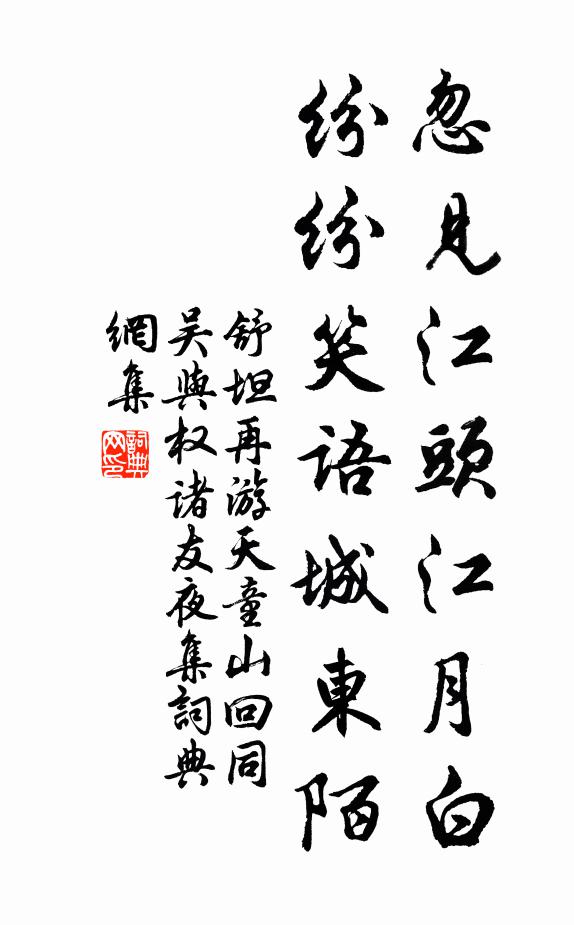 忽見江頭江月白
紛紛笑語城東陌
舒坦再游天童山回同
吴與权诸友夜集詞典
網集
詞典网印